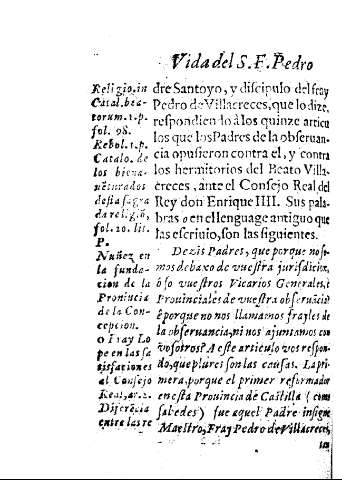 Vida del S. F. Pedro
Religio.in
Catal.bea-
torum.1.p.
fol. 98.
Rebol.1.p.
Catalo. de
los biena-
uẽturados
desta sagra
da religiõ,
fol.20. lit.
P.
Nuñez en
la funda-
cion de la
Prouincia
de la Con-
cepcion.
o Fray Lo
pe en las sa
tisfaciones
al Consejo
Real, ar.2.
Diferẽcia
entre las re
dre Santoyo, y discipulo del fray
Pedro de Villacreces, que lo dize,
respondiendo à los quinze articu
los que los Padres de la obseruan-
cia opusieron contra el, y contra
los hermitorios del Beato Villa-
creces, ante el Consejo Real del
Rey don Enrique IIII. Sus pala-
bras o en el lenguage antiguo que
las escriuio, son las siguientes.
Dezis Padres, que porque no so-
mos debaxo de vuestra jurisdicion,
ò so vuestros Vicarios Generales, è
Prouinciales de vuestra obseruãcia
è porque no nos llamamos frayles de
la obseruancia, ni nos ajuntamos con
vosotros? A este articulo vos respon-
do, que plures son las causas. La pri-
mera, porque el primer reformador
en esta Prouincia de Castilla (como
sabedes) fue aquel Padre insigne
Maestro, Fray Pedro de Villacreces,